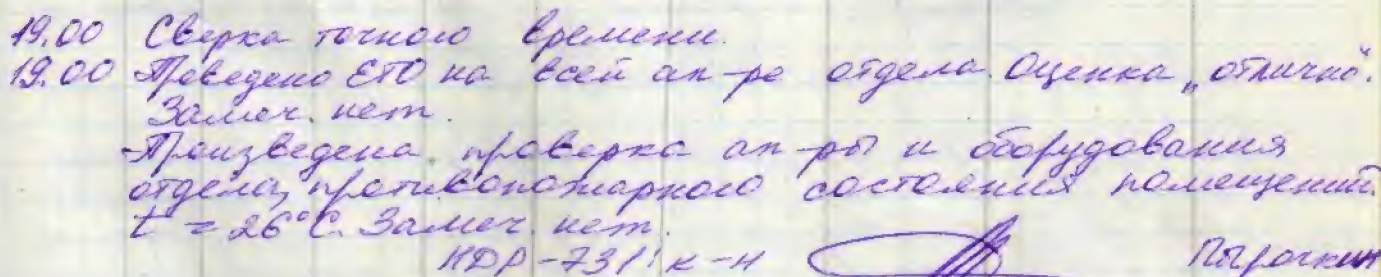 19.00 Сверка точного времени.
19.00 Проведено ЕТО на всей ап-ре отдела. Оценка „отлично".
Замеч. нет.
Произведена проверка ап-ры и оборудования
отдела, противопожарного состояния помещений.
t = 26°С. Замеч. нет.
НДР-731 к-н